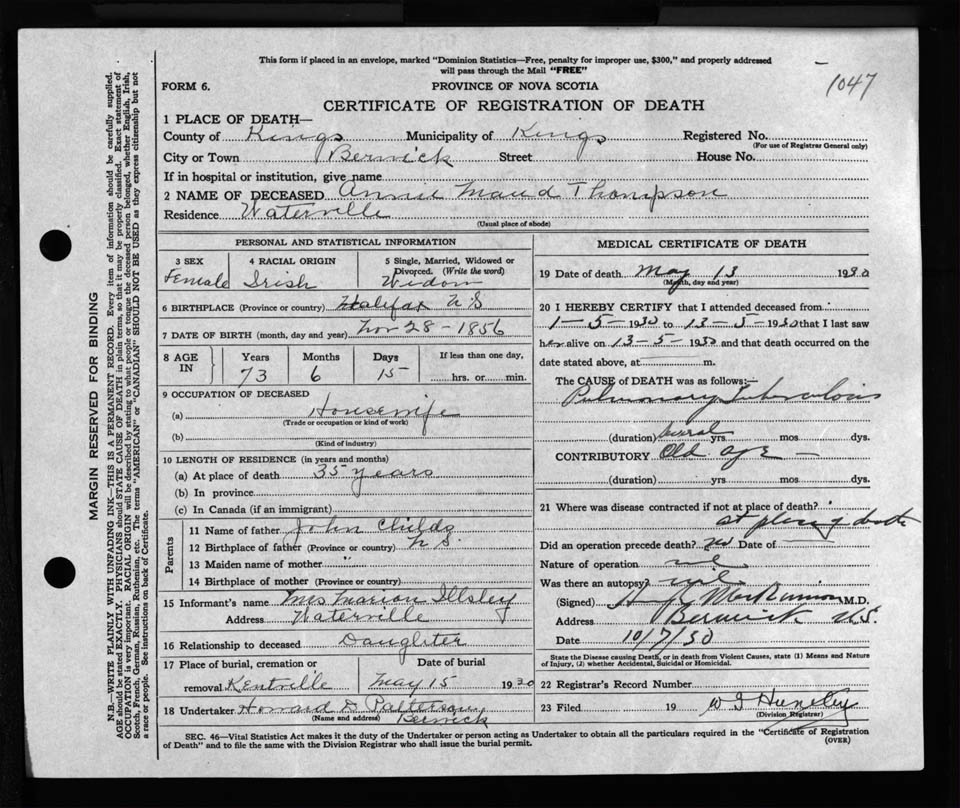 This form if placed in an envelope, marked "Dominion Statistics—Free, penalty for improper use, $300," and properly addressed
will pass through the Mail "FREE"
1047
FORM 6.
PROVINCE OF NOVA SCOTIA
CERTIFICATE OF REGISTRATION OF DEATH
1 PLACE OF DEATH—
County of Kings Municipality of Kings Registered No.
(For use of Registrar General only)
City or Town Berwick Street House No.
If in hospital or institution, give name
2 NAME OF DECEASED Annie Maud Thompson
Residence Waterville
(Usual place of abode)
PERSONAL AND STATISTICAL INFORMATION
3 SEX 4 RACIAL ORIGIN 5 Single, Married, Widowed or
Divorced. (Write the word)
Female Irish Widow
6 BIRTHPLACE (Province or country) Halifax N S
7 DATE OF BIRTH (month, day and year) Nov 28 - 1856
8 AGE IN Years Months Days If less than one day,
73 6 15 hrs. or min.
9 OCCUPATION OF DECEASED
(a) Housewife
(Trade or occupation or kind of work)
(b)
(Kind of industry)
10 LENGTH OF RESIDENCE (in years and months)
(a) At place of death 35 years
(b) In province
(c) In Canada (if an immigrant)
Parents
11 Name of father John Childs
12 Birthplace of father (Province or country) N S.
13 Maiden name of mother "
14 Birthplace of mother (Province or country)
15 Informant's name Mrs Marion Illsley
Address Waterville
16 Relationship to deceased Daughter
17 Place of burial, cremation or Date of burial
removal Kentville May 15 1930
18 Undertaker Howard D Patterson
(Name and address) Berwick
MEDICAL CERTIFICATE OF DEATH
19 Date of death May 13 1930
(Month, day and year)
20 I HEREBY CERTIFY that I attended deceased from
1-5-1930 to 13-5-1930 that I last saw
her alive on 13-5-1930 and that death occurred on the
date stated above, at m.
The CAUSE OF DEATH was as follows:—
Pulmonary Tuberculosis
(duration) yrs. mos. dys.
CONTRIBUTORY Old age —
(duration) yrs. mos. dys.
21 Where was disease contracted if not at place of death?
at place of death
Did an operation precede death? no Date of
Nature of operation
Was there an autopsy?
(Signed) M.D.
Address Berwick N.S.
Date 10/7/30
State the Disease causing Death, or in death from Violent Causes, state (1) Means and Nature
of Injury, (2) whether Accidental, Suicidal or Homicidal.
22 Registrar's Record Number
23 Filed 19 Huntley
(Division Registrar)
SEC. 46—Vital Statistics Act makes it the duty of the Undertaker or person acting as Undertaker to obtain all the particulars required in the "Certificate of Registration
of Death" and to file the same with the Division Registrar who shall issue the burial permit.
(OVER)
MARGIN RESERVED FOR BINDING
N.B.—WRITE PLAINLY WITH UNFADING INK—THIS IS A PERMANENT RECORD. Every item of information should be carefully supplied.
AGE should be stated EXACTLY. PHYSICIANS should STATE CAUSE OF DEATH in plain terms, so that it may be properly classified. Exact statement of
OCCUPATION is very important. RACIAL ORIGIN will be described by stating to what people or tongue the deceased person belonged, whether English, Irish,
Scotch, French, German, Russian, Ruthenian, etc. The terms "AMERICAN" or "CANADIAN" SHOULD NOT BE USED as they express citizenship but not
a race or people. See instructions on back of Certificate.